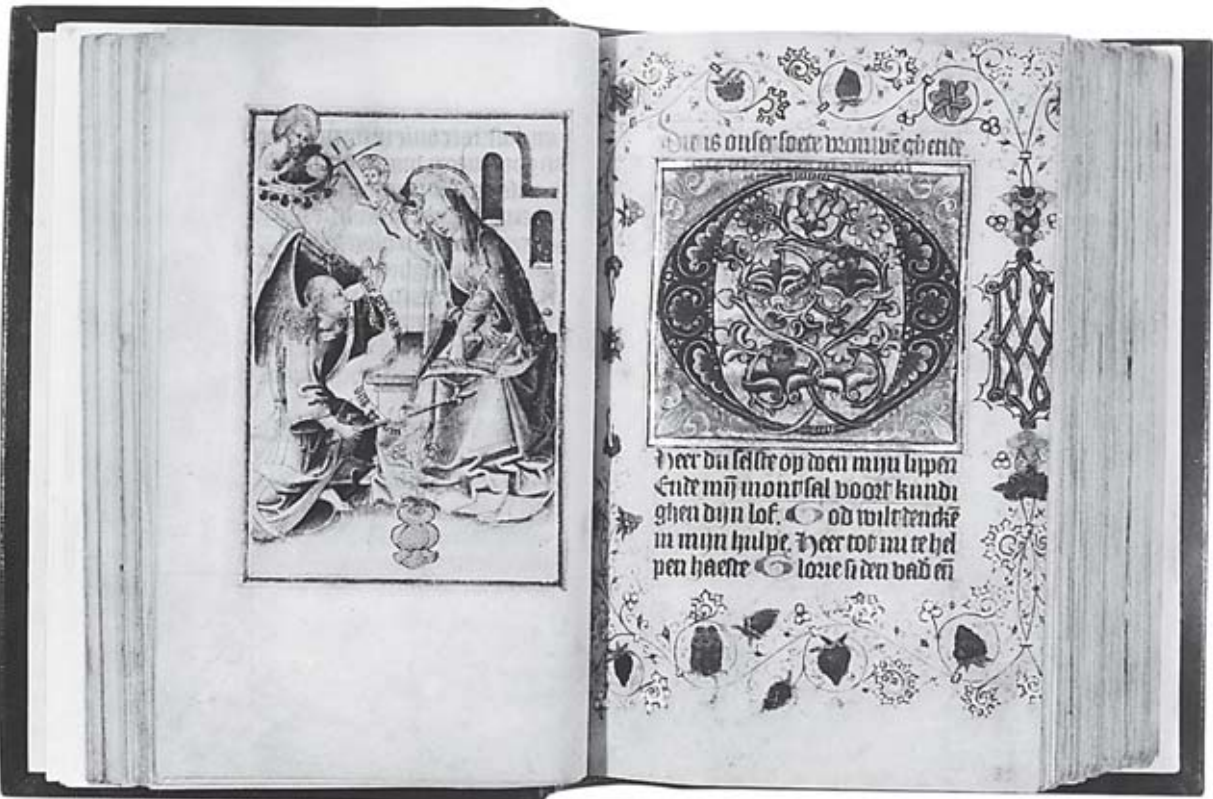 Die is onser soete vrouwē ghetide
Heer du selste op doen mijn lippen
Ende mijn mont sal voort kundi
ghen dijn lof. God wilt denckē
in mijn hulpe. Heer tot mi te hel
pen haeste Glorie si den vad' eñ